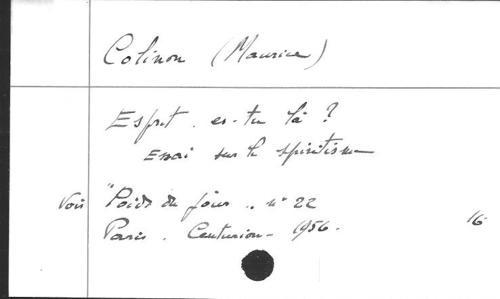 Colinon (Maurice)
Esprit . es-tu là ?
Essai sur le spiritisme
Voir "Poids du jour". n° 22
Paris . Centurion - 1956 . 16